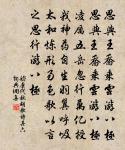 思與王喬乘雲遊八極
思與王喬乘雲遊八極
凌厲五岳忽行萬億授
我神藥自生羽翼呼吸
太和練形易色歌以言
之思行遊八極
嵇康代秋胡歌詩其六